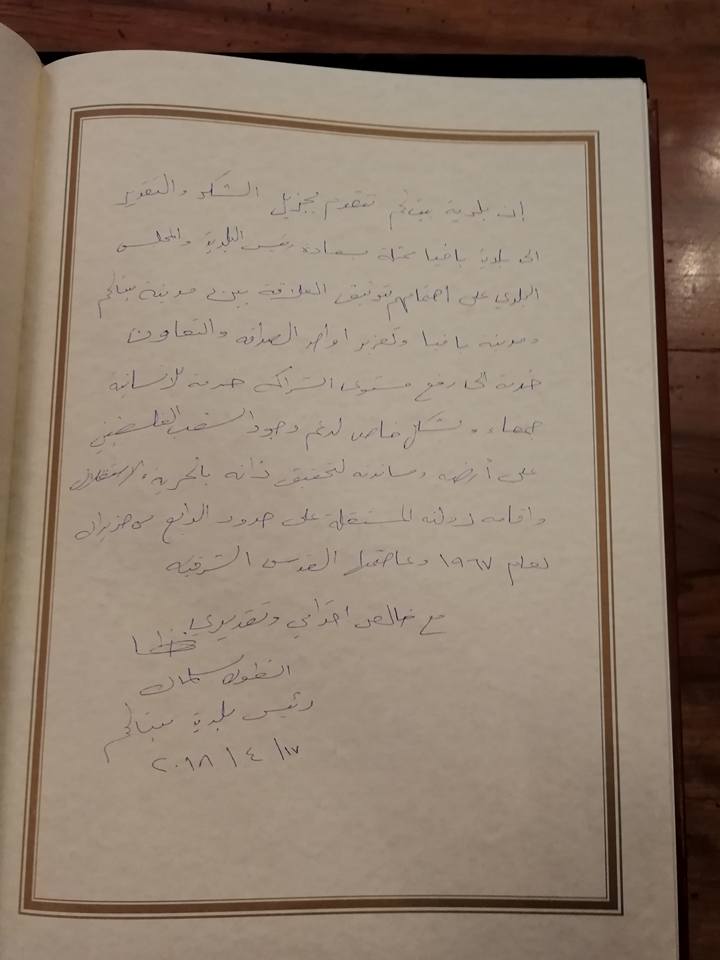 إن بلدية بيتلحم تتقدم بجزيل الشكر والتقدير
الى بلدية بافيا ممثلة بسعادة رئيس البلدية والمجلس
البلدي على اهتمامهم بتوثيق العلاقة بين مدينة بيتلحم
ومدينة بافيا وتعزيز اواصر الصداقة والتعاون
الى رفع مستوى الشراكة خدمة للانسانية
جمعاء وبشكل خاص لدعم وجود الشعب الفلسطيني
على أرضه ومساندته لتحقيق ذاته بالحرية والاستقلال
واقامة دولته المستقلة على حدود الرابع من حزيران
لعام ١٩٦٧ وعاصمتها القدس الشرقية
مع خالص احترامي وتقديري
انطون سلمان
رئيس بلدية بيتلحم
١٧/ ٤ / ٢٠١٨